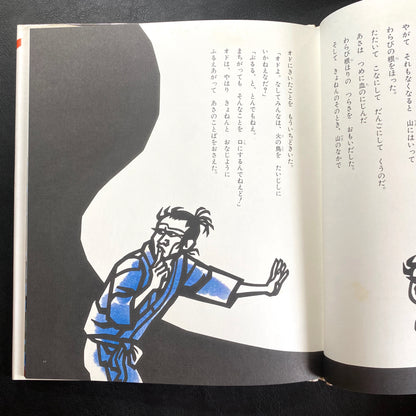 やがて それもなくなると 山にはいって
わらびの根をほった。
たたいて こなにして だんごにして くうのだ。
あさは つめに血のにじんだ
わらび根ほりの つらさを おもいだした。
そして きょねんのそのとき、山のなかで
オドにきいたことを もういちどきいた。
「オドよ、なしてみんなは、火の鳥を たいじしに
いかねえなだ?」
「ぶるる、とんでもねえ。
まちがっても そんなことを 口にするんでねえど!」
オドは、やはり きょねんと おなじように
ふるえあがって あさのことばをおさえた。